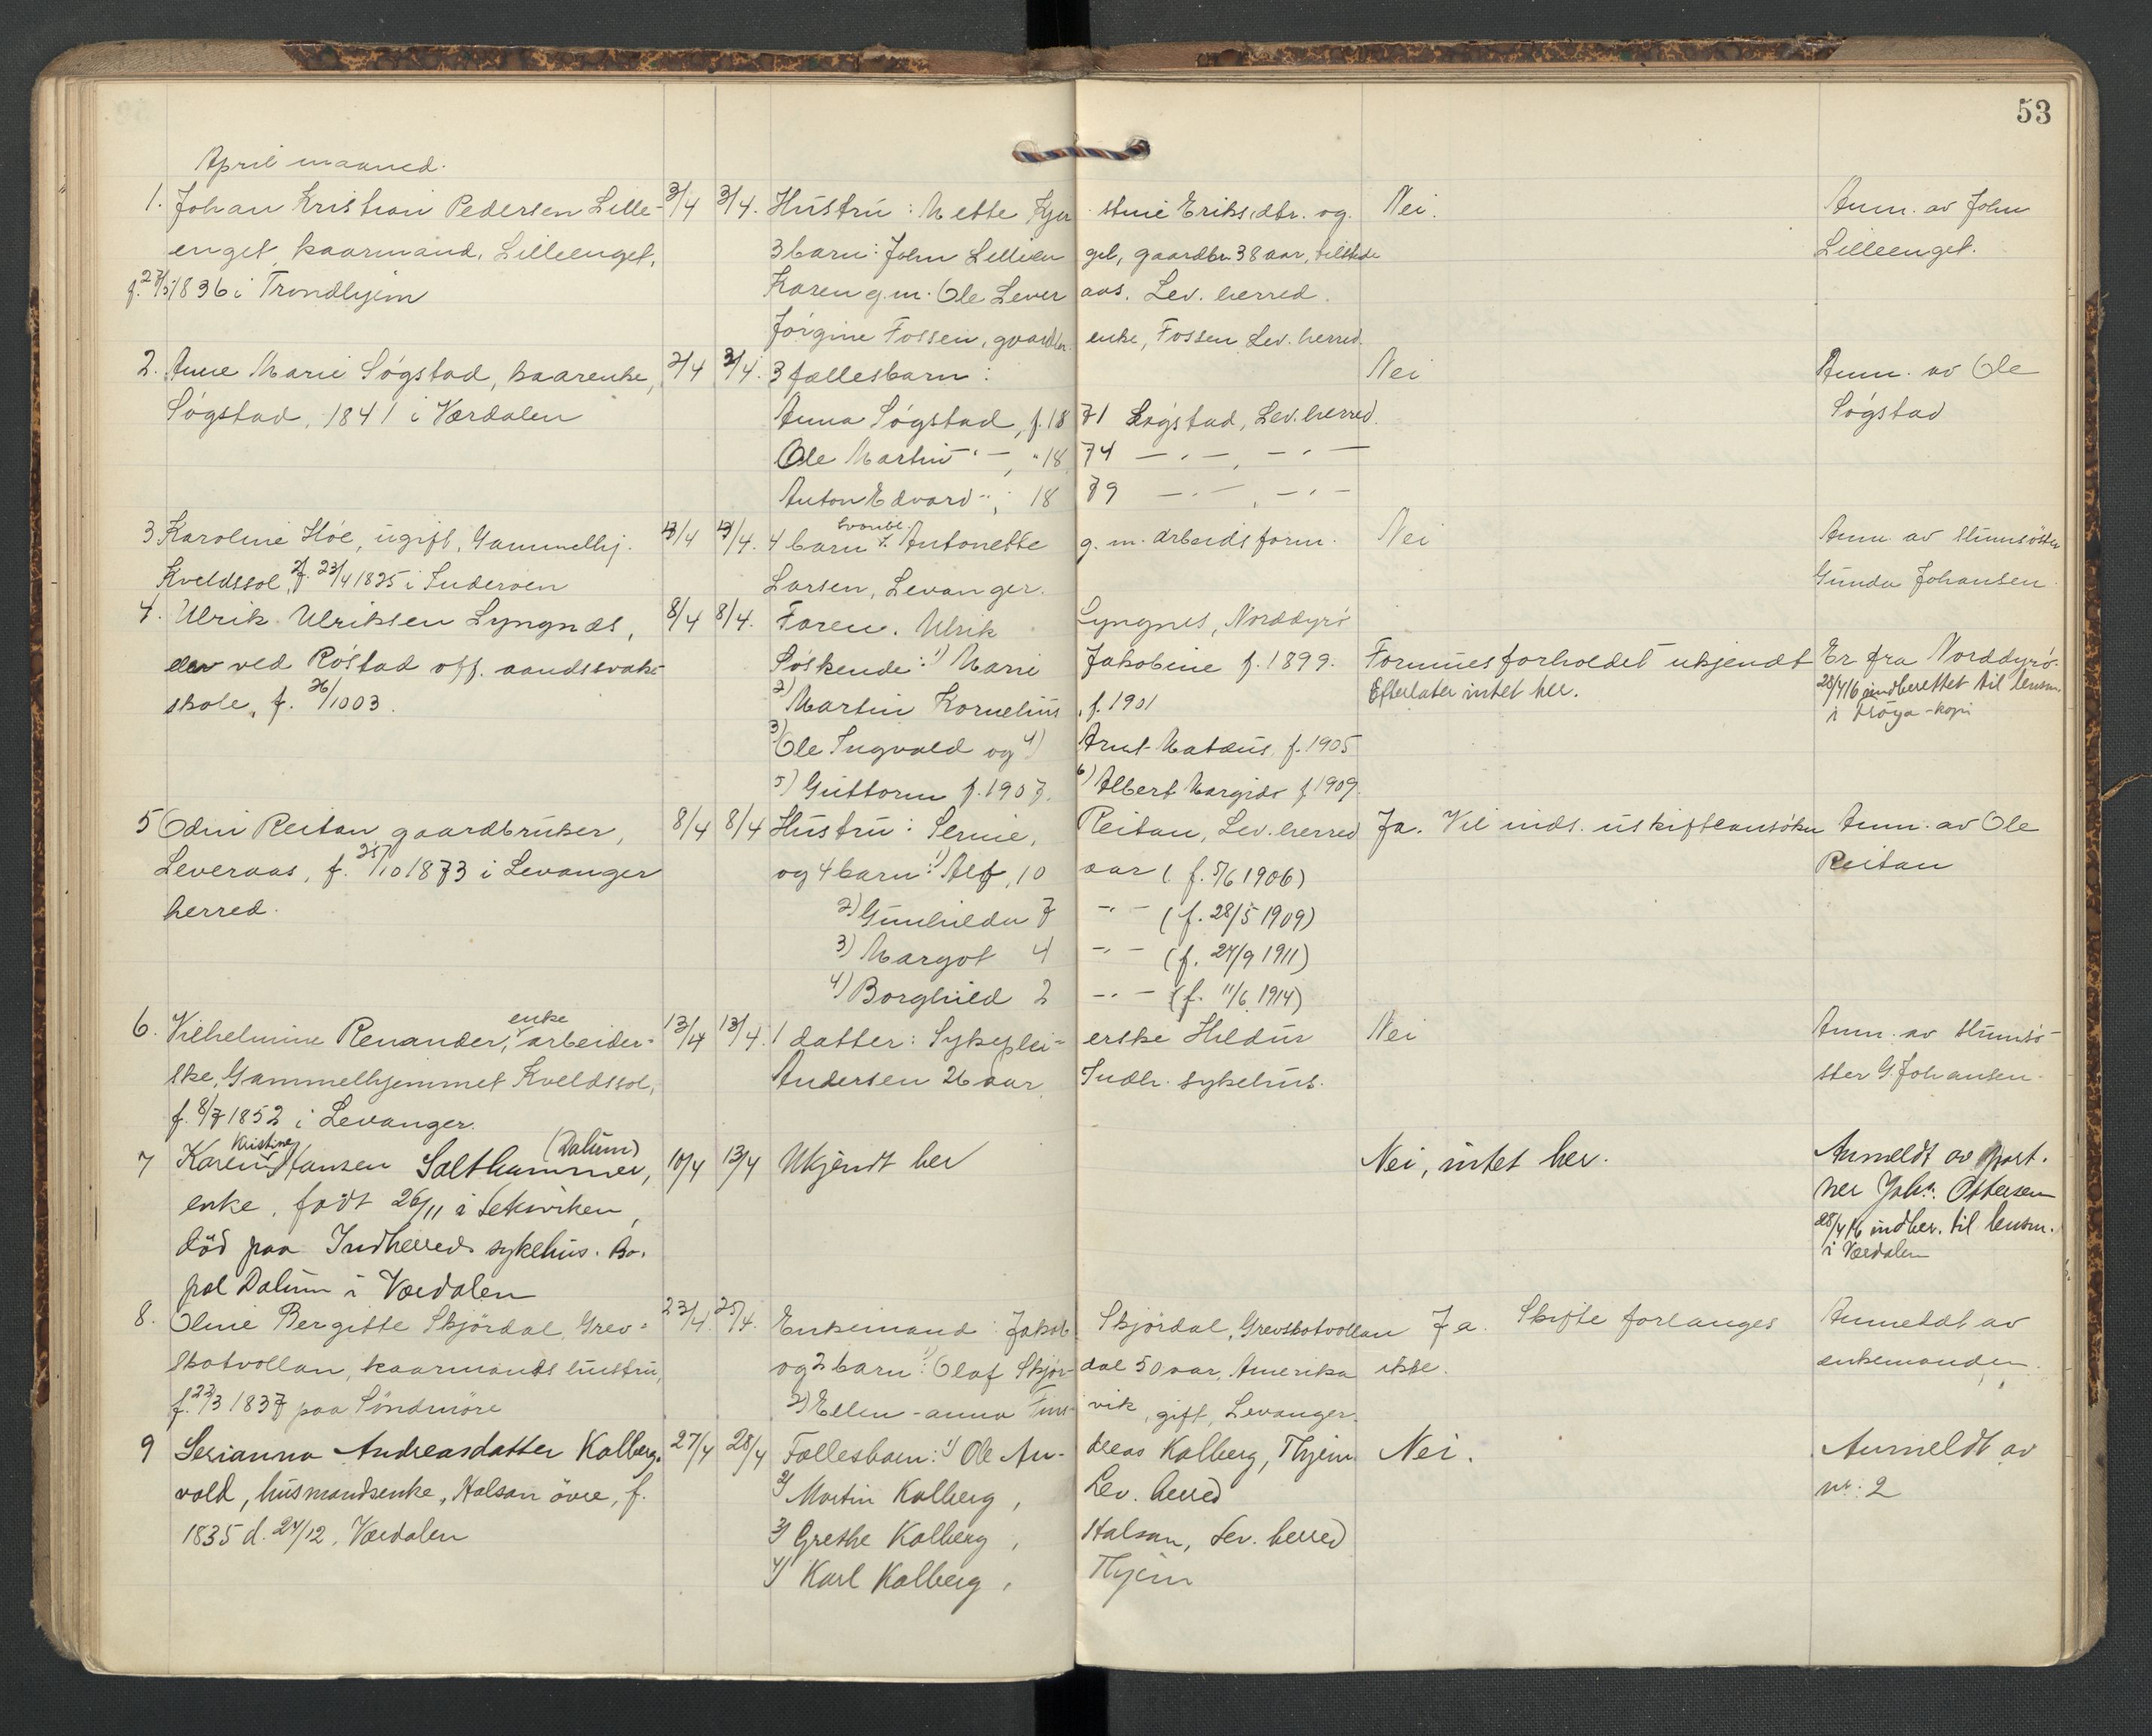 53
April maaned.
1. Johan Kristian Pedersen Lille- 3/4 3/4. Hustru: Mette Kjer stine Eriksdtr. og Nei. Anm. av John
enget, kaarmand, Lilleenget, 3 barn: John Lilleen get, gaardbr. 38 aar, tilstede Lilleenget.
f. 27/5 1836 i Trondhjem Karen g.m. Ole Lever aas. Lev. herred.
Jørgine Fossen, gaardbr. enke, Fossen Lev. herred.
2. Anne Marie Søgstad, kaarenke, 2/4 3/4. 3 fællesbarn: Nei Anm. av Ole
Søgstad, 1841 i Værdalen Anna Søgstad, f. 18 71 Søgstad, Lev. herred. Søgstad
Ole Martin -"-, " 18 74 -"-, -"-
Anton Edvard -"-, 18 79 -"-, -"-
3 Karoline Høe, ugift, Gammelhj. 13/4 13/4. 4 barn Antonette g.m. arbeidsform. Nei Anm. av
Kveldssol, f. 23/4 1825 i Larsen, Levanger. Gunda Johansen.
4. Ulrik Ulriksen Lyngnæs, 8/4 8/4. Faren. Ulrik Lyngnes, Norddyrø
elev ved Røstad off. aandssvake Søskende: 1) Marie Jakobine f. 1899. Formuesforholdet ukjendt Er fra Norddyrø.
skole, f. 26/1003. 2) Martin Kornelius, f. 1901 Efterlater intet her. 28/4 16 indberettet til lensm.
i Frøya - kopi
3) Ole Ingvald og 4) Arnt Mateus, f. 1905
5) Guttorm f. 1907. 6) Albert Margido f 1909.
5 Odin Reitan gaardbruker, 8/4 8/4 Hustru: Serine, Reitan, Lev. herred Ja. Vil inds. uskifteansøkn Anm. av Ole
Leveraas, f. 25/10 1873 i Levanger og 4 barn: 1) Alf, 10 aar (f. 5/6 1906) Reitan
herred. 2) Gunhilda 7 -"- (f. 28/5 1909)
3) Margot 4 -"- (f. 24/9 1911)
4) Borghild 2 -"- (f. 11/6 1914)
6. Vilhelmine Renander, enke arbeider- 13/4 13/4. 1 datter: Sykeplei- erske Hildur Nei Anm. av
ske, Gammelhjemmet Kveldssol, Andersen 26 aar, Indh. sykehus. ster G. Johansen.
f. 8/7 1852 i Levanger.
7 Karen Kristine Hansen Salthammer, (Dalum) 10/4 13/4 Ukjendt her Nei, intet her. Anmeldt av port-
enke, født 26/11 i Leksviken, ner Johs. Ottersen
død paa Indherreds sykehus. Bo- 28/4 16 indber. til lensm.
pæl Dalum i Værdalen i Værdalen
8. Oline Bergitte Skjørdal, Grev- 23/4. 25/4. Enkemand: Jakob Skjørdal, Grevskotvollan Ja. Skifte forlanges Anmeldt av
skotvollan, kaarmands hustru, og 2 barn: 1) Olaf Skjør- dal 50 aar, Amerika ikke. enkemanden.
f. 22/3 1837 paa Søndmøre 2) Ellen-anna Finn- vik, gift, Levanger.
9 Serianna Andreasdatter Kalberg- 27/4 28/4 Fællesbarn: 1) Ole An- dreas Kalberg, Thjem Nei. Anmeldt av
vald, husmandsenke, Halsan øvre, f. 2) Martin Kalberg, Lev. herred nr. 2
1835 d. 24/12. Værdalen 3) Grethe Kalberg, Halsan, Lev. herred
4) Karl Kalberg, Thjem